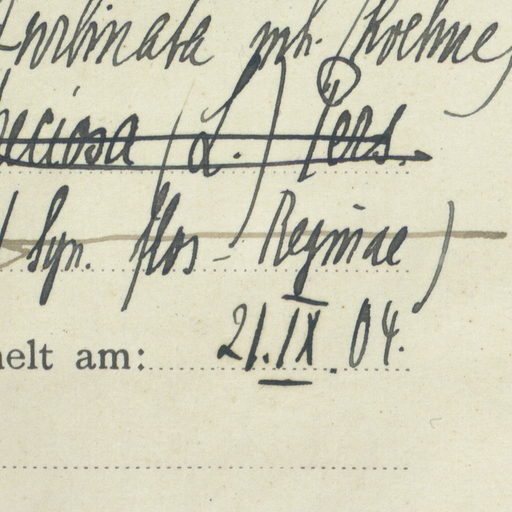 turbinata mh. (Koehne)
eciosa (L.) Pers.
Syn. flos-Reginae)
elt am: 21.IX.04.